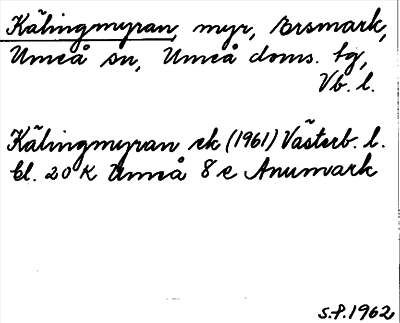 Kälingmyran, myr, Ersmark,
Umeå sn, Umeå doms. tg,
Vb. l.
Kälingmyran ek (1961) Västerb. l.
bl. 20 K Umeå 8 e Anumark
S.F. 1962